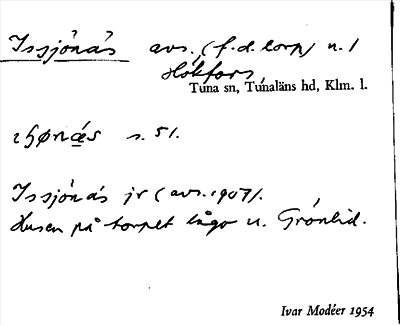 Issjönäs avs. (f.d. torp) u. /
Hökfors
Tuna sn, Tunaläns hd, Klm. l.
s. 51.
Issjönäs jr (avs. 1907).
Husen på torpet lågo u. Grönlid.
Ivar Modéer 1954